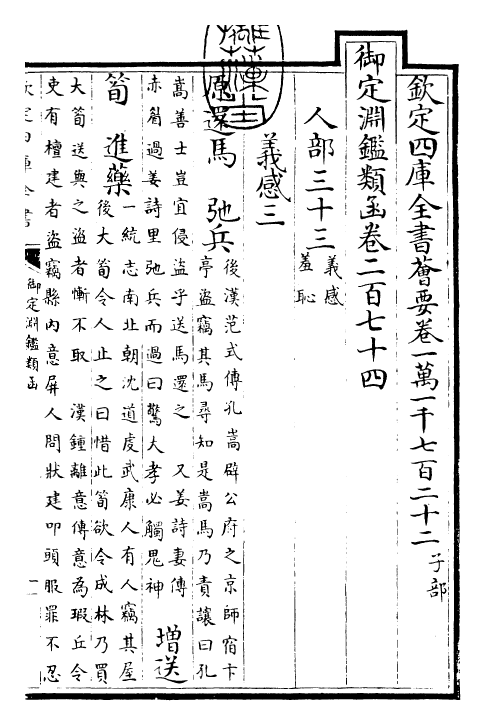 欽定四庫全書薈要卷一萬一千七百二十二 子部
御定淵鑑類函卷二百七十四
人部三十三 義感 羞恥
義感三
原還馬 弛兵 後漢范式傳孔嵩辟公府之京師宿下
亭盜竊其馬尋知是嵩馬乃責讓曰孔
嵩善士豈宜侵盜乎送馬還之 又姜詩妻傳
赤眉過姜詩里弛兵而過曰驚大孝必觸鬼神 增送
筍 進藥 一統志南北朝沈道虔武康人有人竊其屋
後大筍令人止之曰惜此筍欲令成林乃買
大筍送與之盜者慚不取 漢鍾離意傳意為瑕丘令
吏有檀建者盜竊縣內意屏人問狀建叩頭服罪不忍
欽定四庫全書
御定淵鑑類函
一